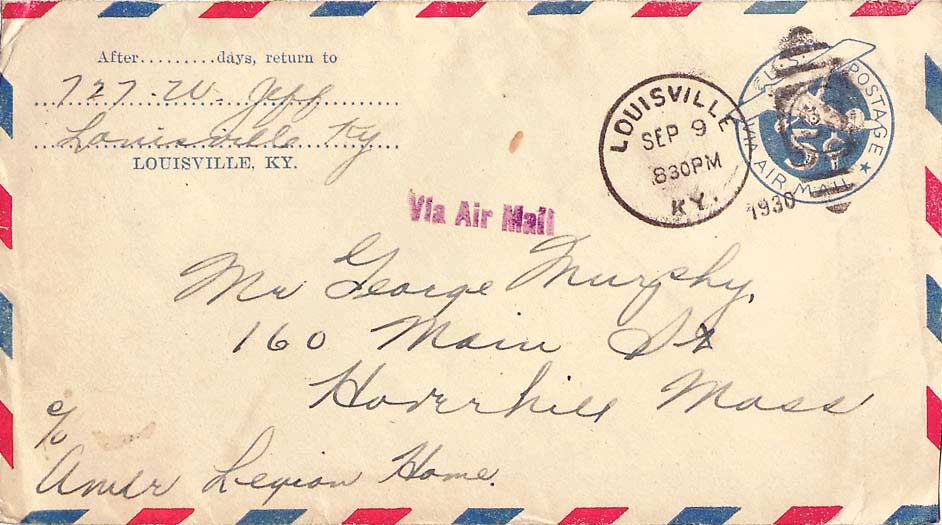 After.........days, return to
727 W. Jeff
Louisville Ky
LOUISVILLE, KY.
LOUISVILLE
SEP 9
830PM
KY.
1930
U.S. POSTAGE
VIA AIR MAIL
5¢
Via Air Mail
Mr George Murphy,
160 Main St
Haverhill Mass
c/o
Amer Legion Home.